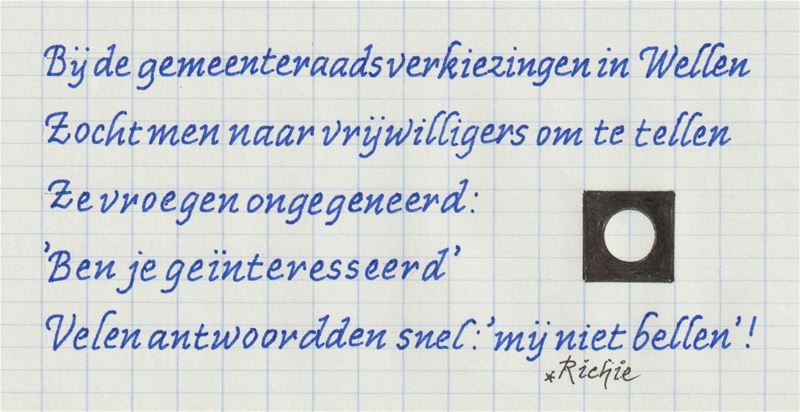 Bij de gemeenteraadsverkiezingen in Wellen
Zocht men naar vrijwilligers om te tellen
Ze vroegen ongegeneerd:
'Ben je geïnteresseerd'
Velen antwoordden snel: 'mij niet bellen'!
*Richie